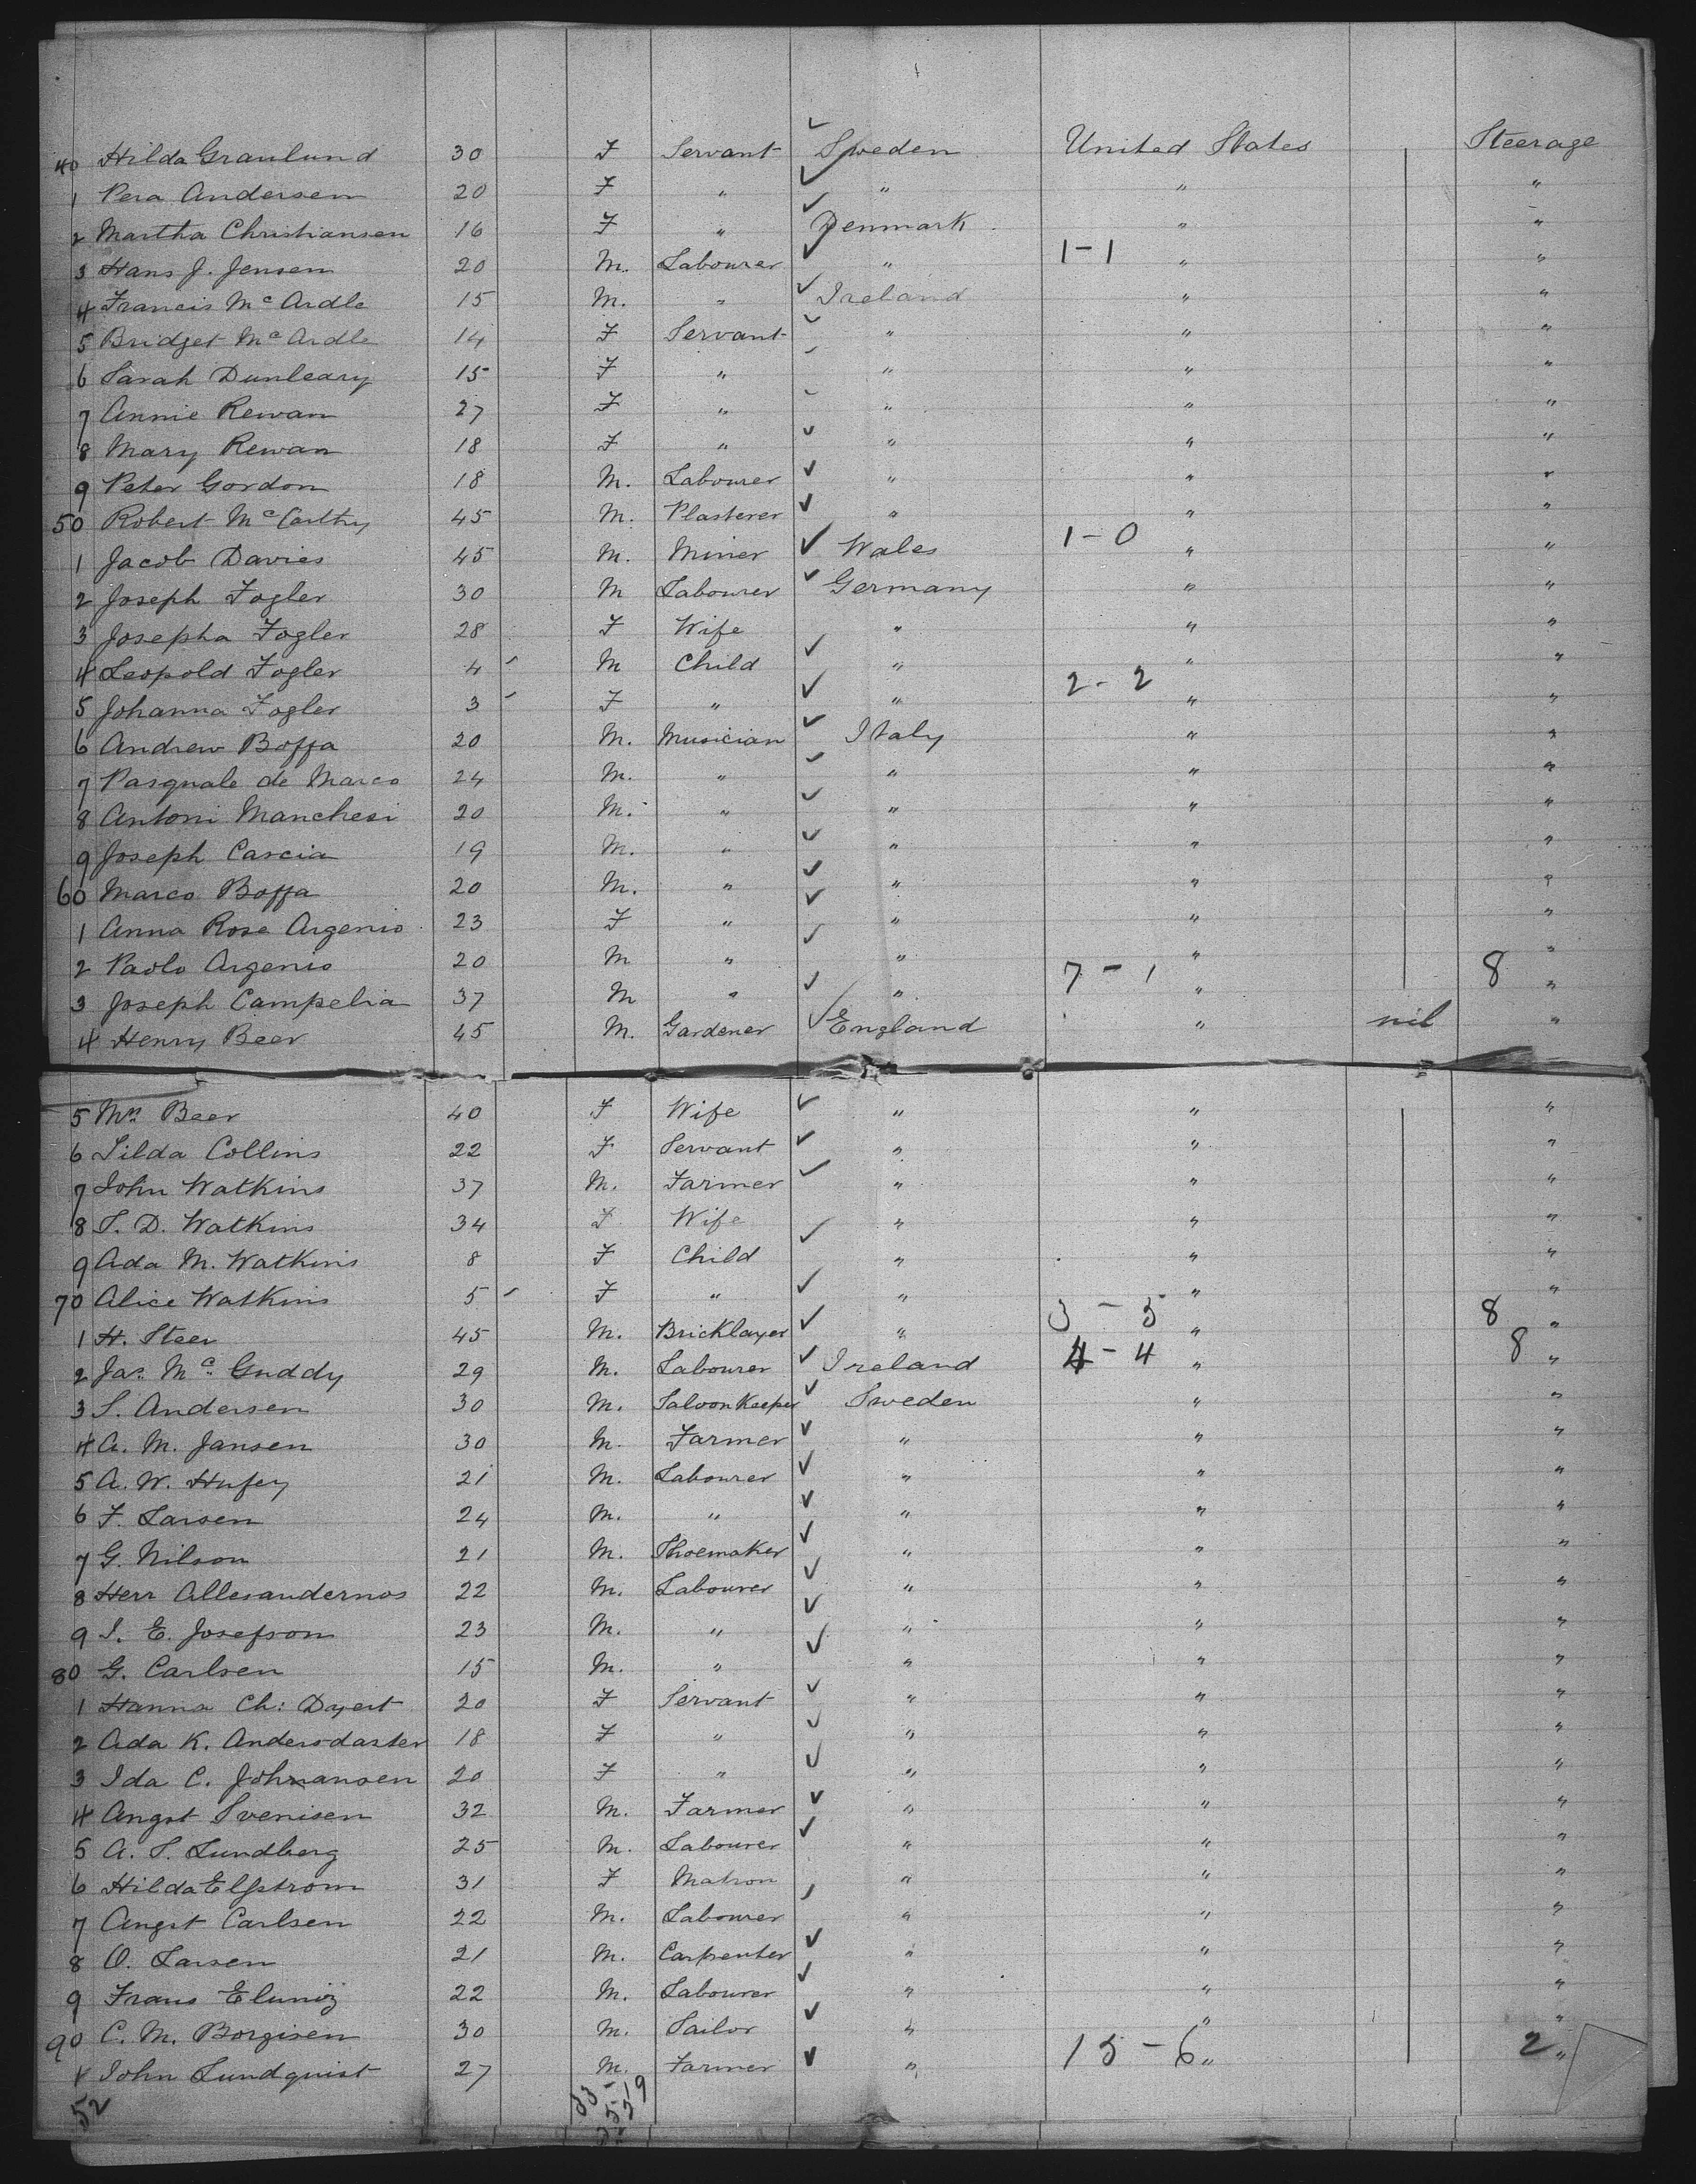 40 Hilda Granlund 30 F Servant Sweden United States Steerage
1 Pera Andersen 20 F " " " "
2 Martha Christiansen 16 F " Denmark " "
3 Hans J. Jensen 20 M. Labourer " 1-1 " "
4 Francis McArdle 15 M. " Ireland " "
5 Bridget McArdle 14 F Servant " " "
6 Sarah Dunleary 15 F " " " "
7 Annie Rewan 27 F " " " "
8 Mary Rewan 18 F " " " "
9 Peter Gordon 18 M. Labourer " " "
50 Robert McCarthy 45 M. Plasterer " " "
1 Jacob Davies 45 M. Miner Wales 1-0 " "
2 Joseph Fogler 30 M Labourer Germany " "
3 Josepha Fogler 28 F Wife " " "
4 Leopold Fogler 4 M Child " " "
5 Johanna Fogler 3 F " " 2-2 " "
6 Andrew Boffa 20 M. Musician Italy " "
7 Pasquale de Marco 24 M. " " " "
8 Antoni Manchesi 20 M. " " " "
9 Joseph Cascia 19 M. " " " "
60 Marco Boffa 20 M. " " " "
1 Anna Rose Argenio 23 F " " " "
2 Paolo Argenio 20 M " " " "
3 Joseph Campelia 37 M " " 7-1 " 8 "
4 Henry Beer 45 M. Gardener England " nil "
5 Mrs Beer 40 F Wife " " "
6 Tilda Collins 22 F Servant " " "
7 John Watkins 37 M. Farmer " " "
8 S. D. Watkins 34 F Wife " " "
9 Ada M. Watkins 8 F Child " " "
70 Alice Watkins 5 F " " " "
1 H. Steer 45 M. Bricklayer " " 8 "
2 Jas McGuddy 29 M. Labourer Ireland 4-4 " 8 "
3 S. Andersen 30 M. Saloon Keeper Sweden " "
4 A. M. Jansen 30 M. Farmer " " "
5 A. W. Hufey 21 M. Labourer " " "
6 F. Larsen 24 M. " " " "
7 G. Nilson 21 M. Shoemaker " " "
8 Herr Allesandernos 22 M. Labourer " " "
9 I. E. Josefson 23 M. " " " "
80 G. Carlsen 15 M. " " " "
1 Hanna Ch: Dyert 20 F Servant " " "
2 Ada K. Andersdaster 18 F " " " "
3 Ida C. Johnansen 20 F " " " "
4 Angst Svenisen 32 M. Farmer " " "
5 A. S. Lundberg 25 M. Labourer " " "
6 Hilda Elfstrom 31 F Matron " " "
7 Angst Carlsen 22 M. Labourer " " "
8 O. Larsen 21 M. Carpenter " " "
9 Frans 22 M. Labourer " " "
90 C. M. Borgisen 30 M. Sailor " " "
John Lundquist 27 M. Farmer " 15-6 " 2 "
52